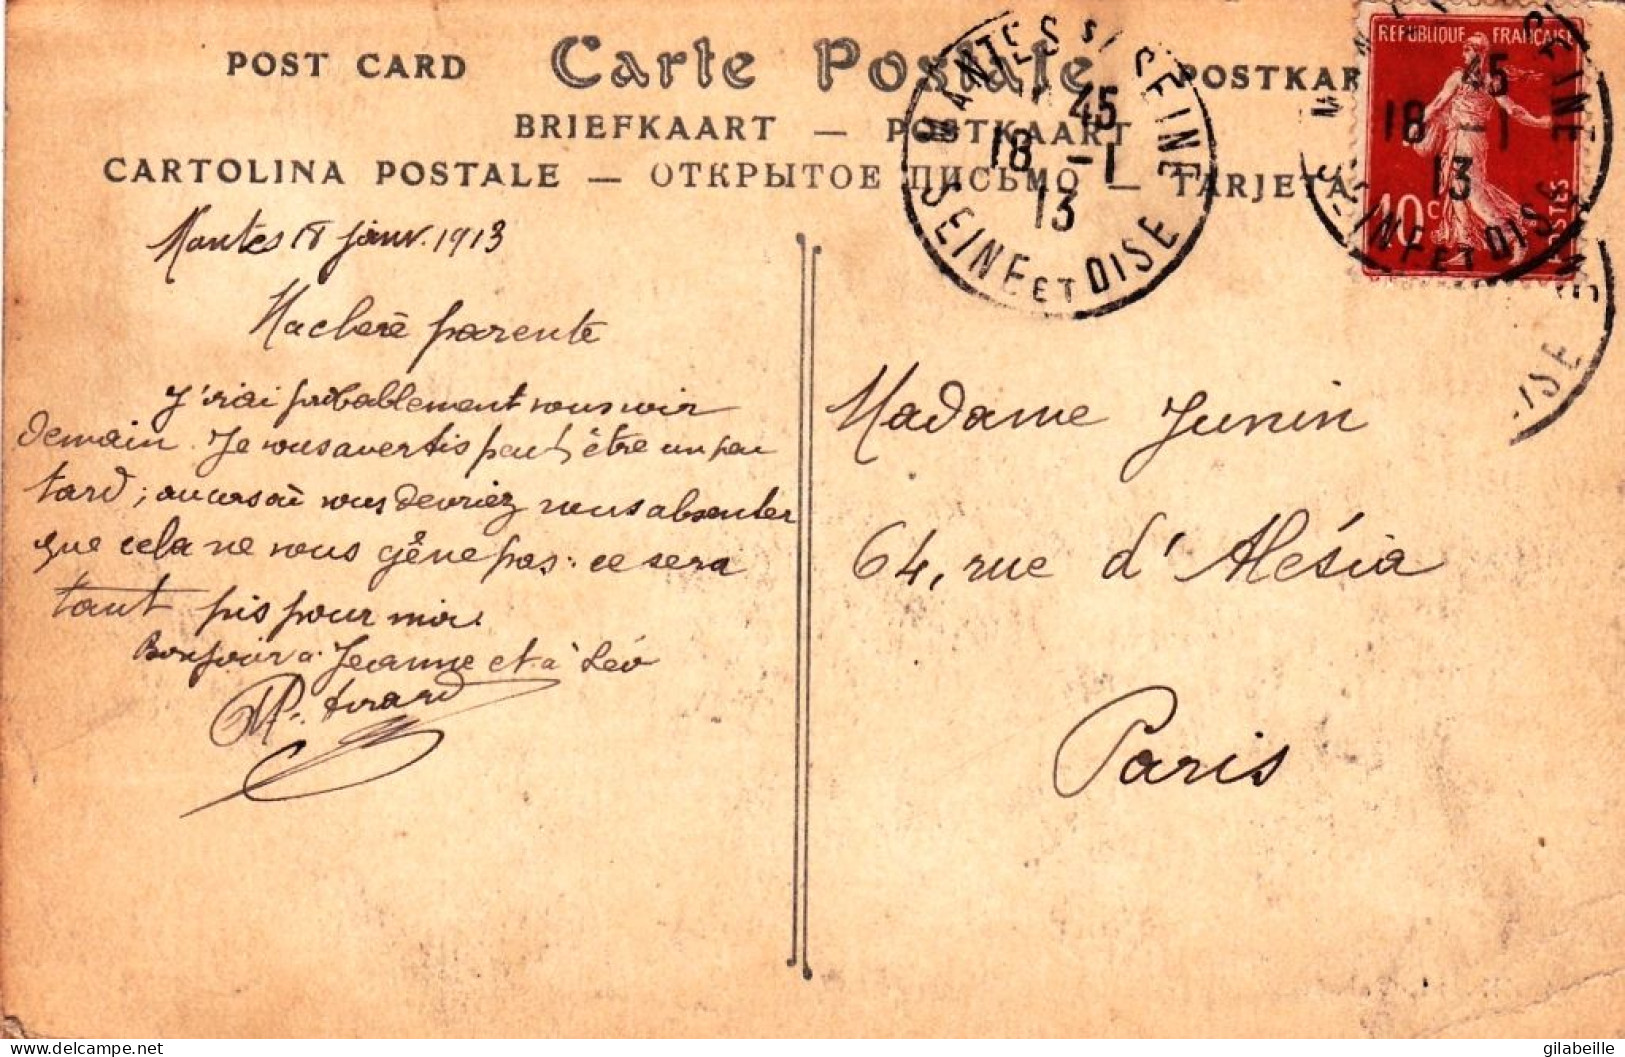 POST CARD Carte Postale POSTKAR
BRIEFKAART — POSTKAART
CARTOLINA POSTALE — ОТКРЫТОЕ ПИСЬМО — TARJETA
MANTES S/ SEINE
45
18 -1
13
SEINE ET OISE
REPUBLIQUE FRANÇAISE
45
18 -1
13
10c POSTES
SEINE ET OISE
Mantes 18 janv. 1913
Ma chère parente
J'irai probablement vous voir
demain. Je vous avertis peut être un peu
tard ; au cas où vous devriez vous absenter
que cela ne vous gêne pas : ce sera
tant pis pour moi.
Bonjour à Jeanne et à Léo
Madame Junin
64, rue d'Alésia
Paris
gilabeille